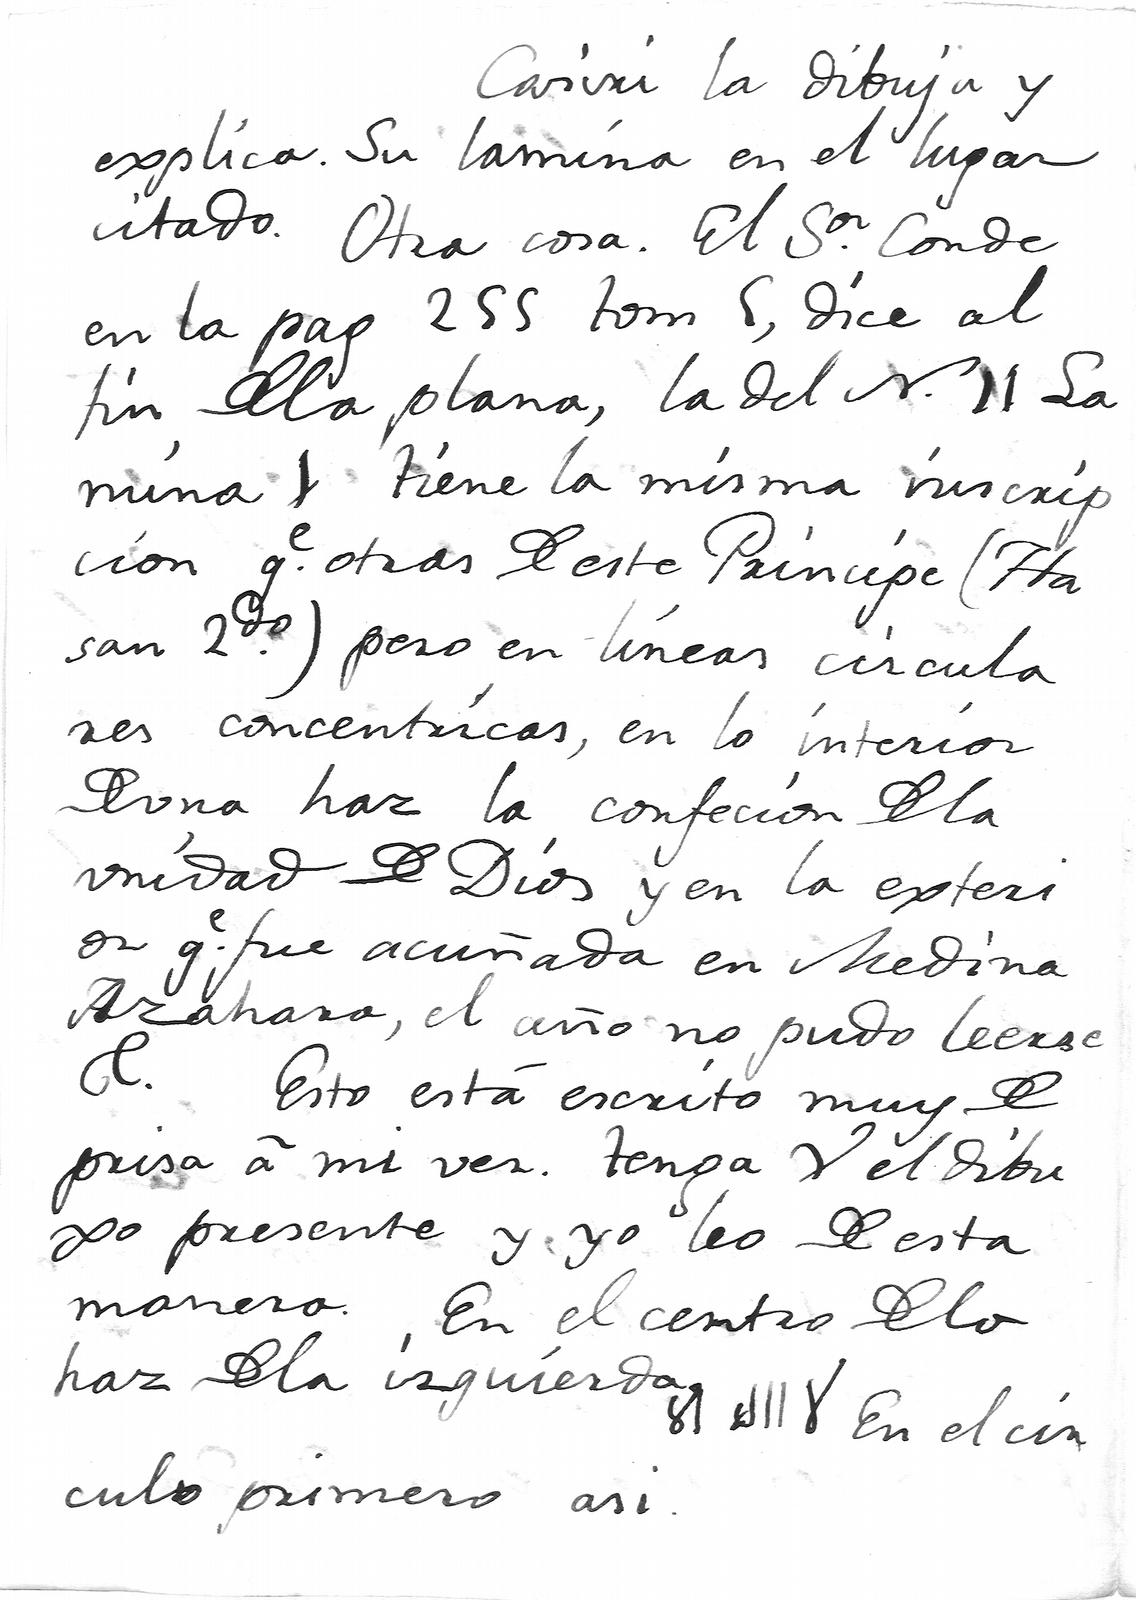 Casiri la dibuja y
explica. Su lamina en el lugar
citado. Otra cosa. El Sor. Conde
en la pag 255 tom 5, dice al
fin dela plana, la del N. 11 La
mina 1 tiene la misma inscrip
cion qe. otras de este Principe (Ha
san 2do.) pero en lineas circula
res concentricas, en lo interior
de una haz la confecion dela
vnidad de Dios y en la exteri
or qe. fue acuñada en Medina
Azahara, el año no pudo leerse
&. Esto está escrito muy de
prisa á mi ver. tenga V el dibu
xo presente y yo leo de esta
manera. En el centro delo
haz dela izquierda En el cir
culo primero asi.